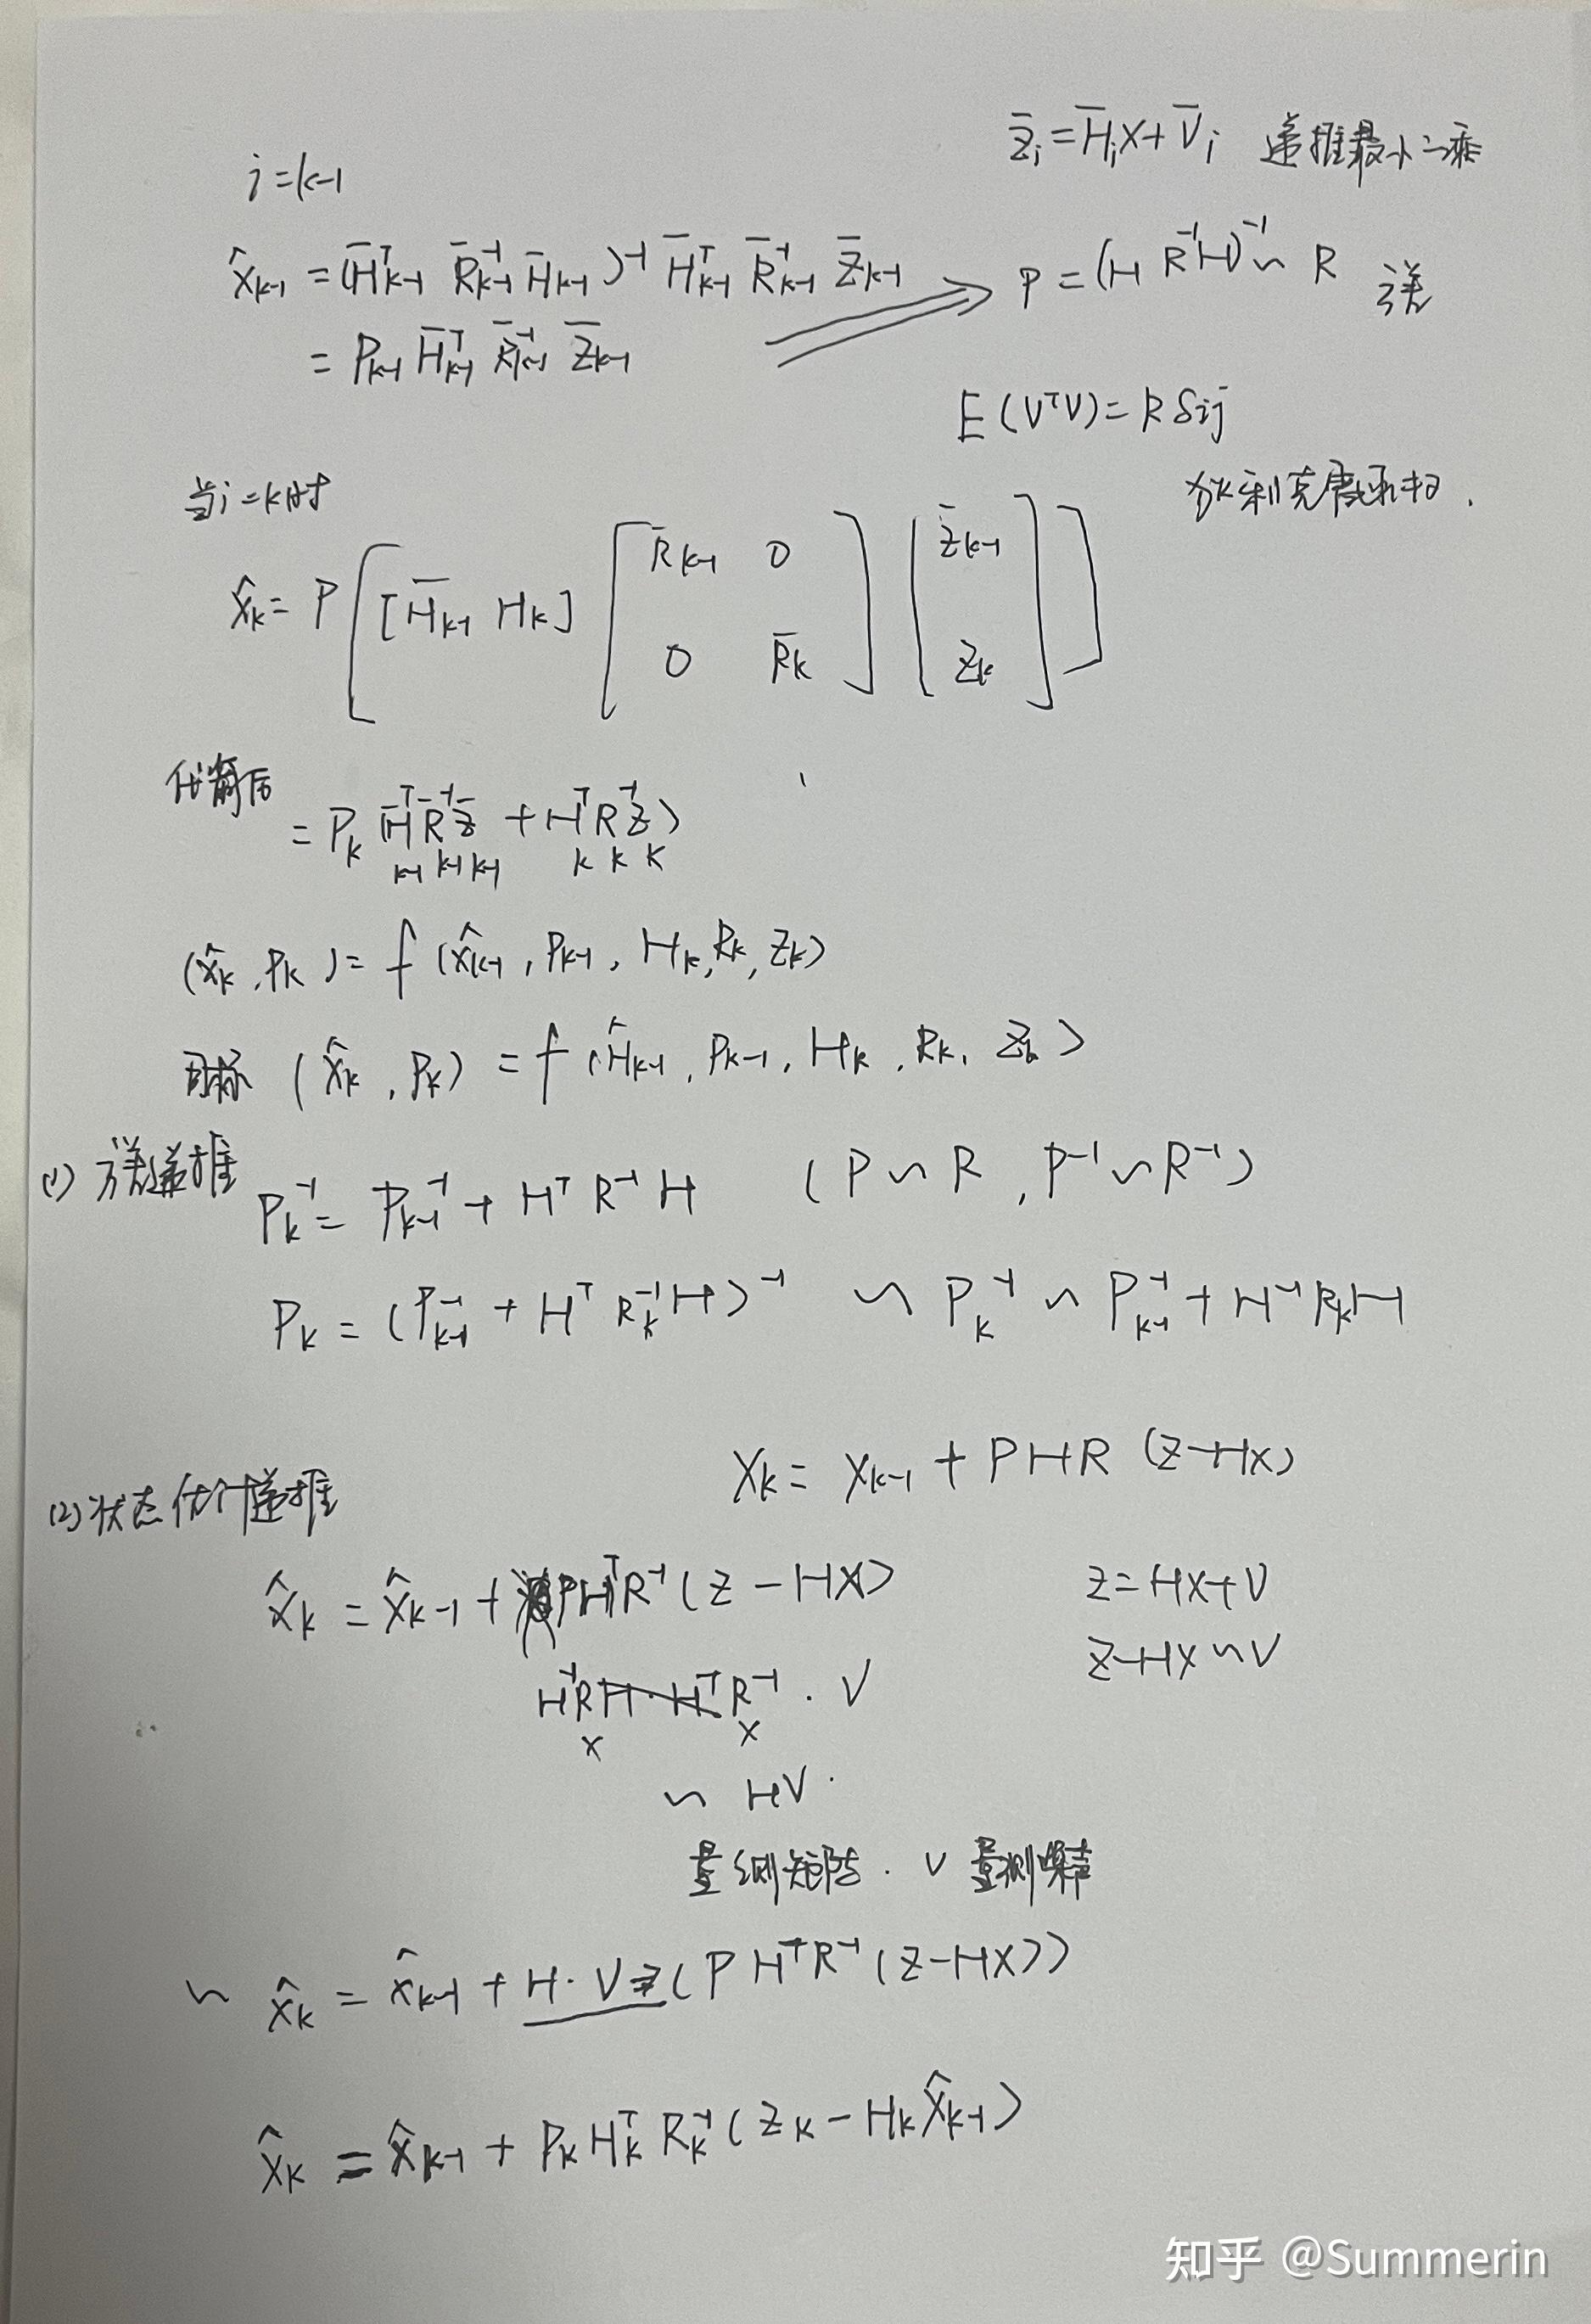 z̄ᵢ = H̄ᵢx + V̄ᵢ 递推最小二乘
i = k-1
x̂ₖ₋₁ = (H̄ᵀₖ₋₁ R̄⁻¹ₖ₋₁ H̄ₖ₋₁)⁻¹ H̄ᵀₖ₋₁ R̄⁻¹ₖ₋₁ Z̄ₖ₋₁ ⇒ P = (H R⁻¹H)⁻¹ ∽ R 方差
= Pₖ₋₁ H̄ᵀₖ₋₁ R̄⁻¹ₖ₋₁ Z̄ₖ₋₁
E(VᵀV) = R δij
狄利克雷
当i=k时
x̂ₖ = P [ [H̄ₖ₋₁ Hₖ] [ R̄ₖ₋₁ 0 ; 0 R̄ₖ ] [ z̄ₖ₋₁ ; zₖ ] ]
= Pₖ (H̄ᵀₖ₋₁ R̄⁻¹ₖ₋₁ z̄ₖ₋₁ + Hᵀₖ R⁻¹ₖ zₖ)
(x̂ₖ, Pₖ) = f(x̂ₖ₋₁, Pₖ₋₁, Hₖ, Rₖ, Zₖ)
目标 (x̂ₖ, Pₖ) = f(Ĥₖ₋₁, Pₖ₋₁, Hₖ, Rₖ, Zₖ)
(1) 方差递推
Pₖ⁻¹ = Pₖ₋₁⁻¹ + Hᵀ R⁻¹ H (P ∽ R, P⁻¹ ∽ R⁻¹)
Pₖ = (Pₖ₋₁⁻¹ + Hᵀ Rₖ⁻¹ H)⁻¹ ∽ Pₖ⁻¹ ∽ Pₖ₋₁⁻¹ + H⁻¹ Rₖ H
Xₖ = Xₖ₋₁ + PHR (Z-HX)
(2) 状态估计递推
x̂ₖ = x̂ₖ₋₁ + PHᵀR⁻¹(Z - HX) Z = HX+V
Z-HX ∽ V
H⁻¹RH · HᵀR⁻¹ · V
x x
∽ HV.
量测矩阵. V 量测噪声
∽ x̂ₖ = x̂ₖ₋₁ + H·V = (P HᵀR⁻¹(Z-HX))
x̂ₖ = x̂ₖ₋₁ + PₖHₖᵀRₖ⁻¹(Zₖ - Hₖx̂ₖ₋₁)
知乎 @Summerin